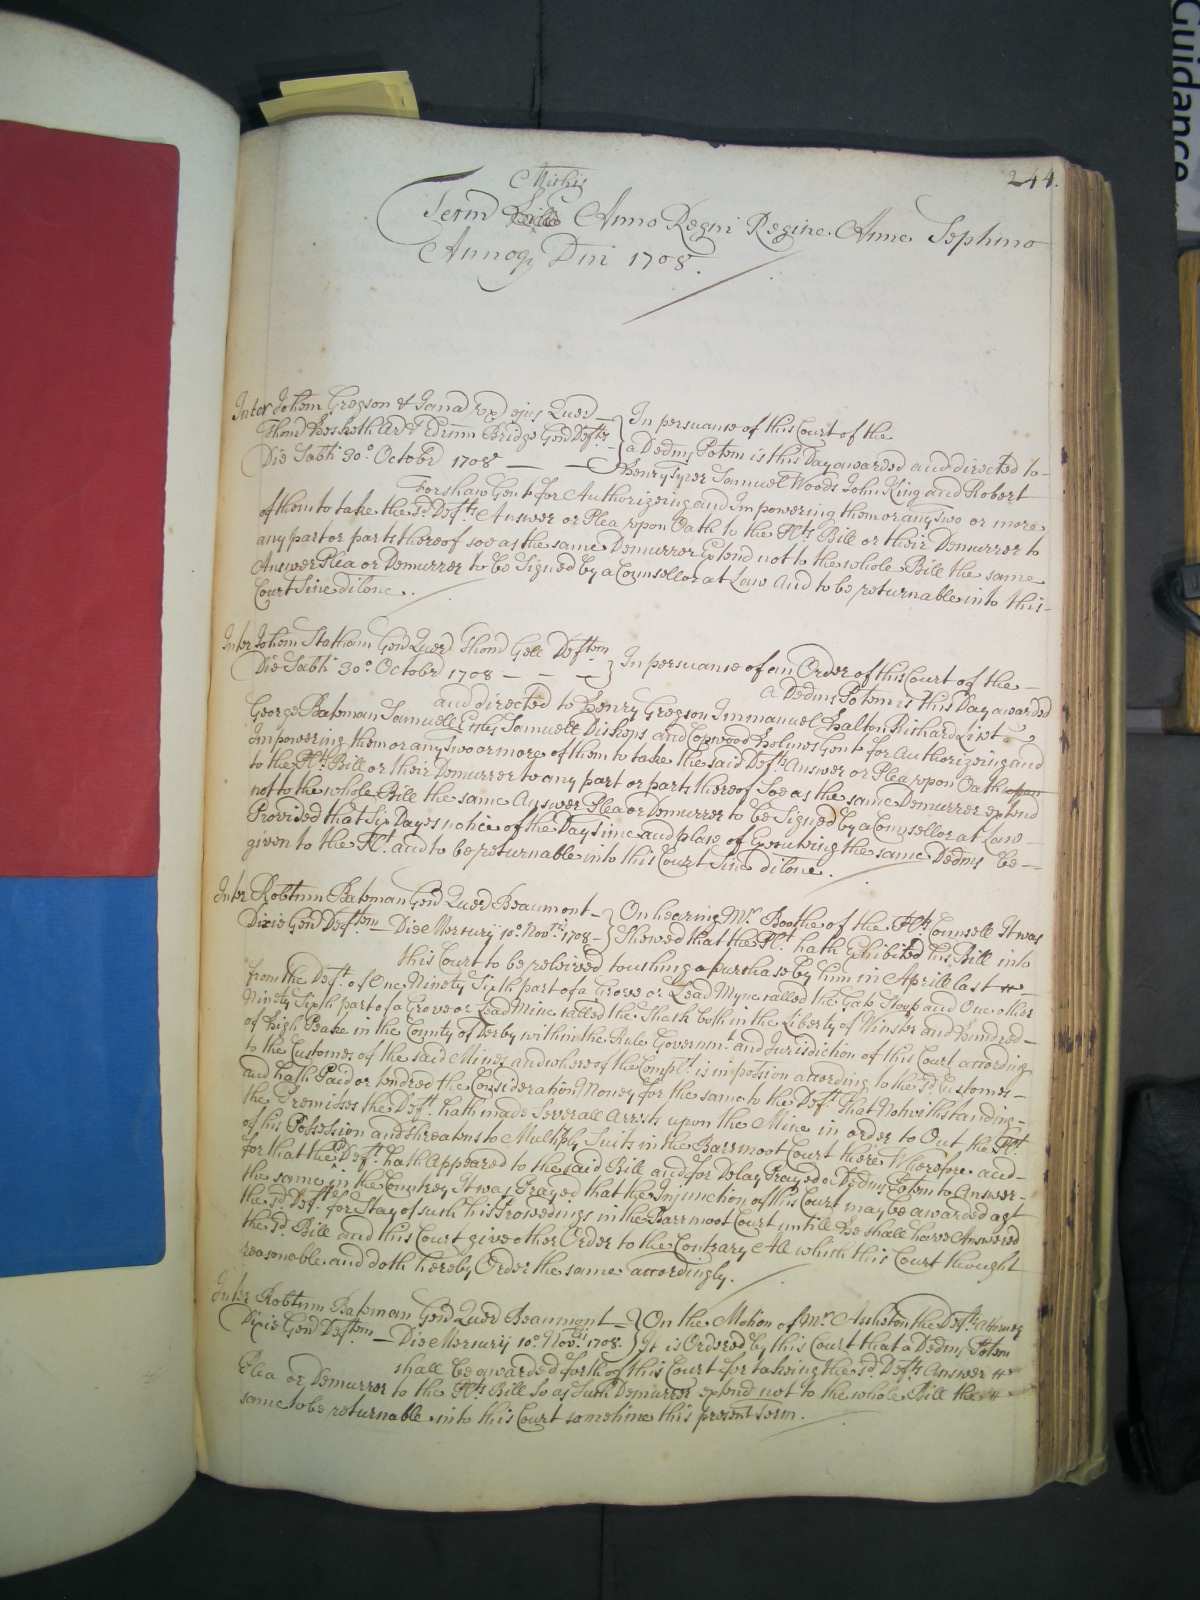 244.
Michis
Term Anno Regni Regine Anne Septimo
Annoq Dni 1708.
Inter Johem Gregson & Jana ux ejus Quer
Thom Hesketh Ar & Edrum Bridge Gen Defts
Die Sabti 30o Octobr 1708
In persuance of this Court of the
a Dedms Potem is this Day awarded and directed to
Henry Tyrer Samuel Woods John King and Robert
Forshaw Gent for Authorizeing and Impowering them or any Two or more
of them to take the sd Defts Answer or Plea upon Oath to the Plts Bill or their Demurrer to
any part or parts thereof soe as the same Demurrer Extend not to the whole Bill the same
Answer Plea or Demurrer to be Signed by a Counsellor at Law And to be returnable into this
Court Sine dilone.
Inter Johem Statham Gen Quer Thom Gell Deftem
Die Sabti 30o Octobr 1708
In persuance of an Order of this Court of the
a Dedms Potem is this Day awarded
and directed to Henry Gregson Immanuel Halton Richard List
George Bateman Samuell Samuell Dickens and Copwood Holmes Gent for Authorizeing and
Impowering them or any Two or more of them to take the said Defts Answer or Plea upon Oath upon
to the Plts Bill or their Demurrer to any part or parts thereof Soe as the same Demurrer extend
not to the whole Bill the same Answer Plea or Demurrer to be Signed by a Counsellor at Law
Provided that Six Dayes notice of the Day Time and place of Executeing the same Dedms be
given to the Plt. and to be returnable into this Court Sine dilone.
Inter Robtum Bateman Gen Quer Beaumont
Dixie Gen Deftem Die Mercurij 10o Novris 1708
On hearing Mr Boothe of the Plts Counsell It was
Shewed that the Plt hath Exhibited his Bill into
this Court to be releived touching a purchase by him in Aprill last
from the Deft. of One Ninety Sixth part of a Grove or Lead Myne called the Gate Stoop and One other
Ninety Sixth part of a Grove or Lead Mine called the Shack both in the Liberty of Winster and Hundred
of High Peake in the County of Derby within the Rule Governmt and Jurisdiction of this Court according
to the Customes of the said Mines and whereof the Complt. is in possion according to the sd Customes
and hath Paid or tendred the Consideration Money for the same to the Deft. That Notwithstanding
the Premisses the Deft. hath made Severall Arrests upon the Mine in order to Out the Plt
of his Possession and threatens to Multiply Suits in the Barrmoot Court there Wherefore and
for that the sd Deft. hath Appeared to the said Bill and for Delay Prayed a Dedms Potem to Answer
the same in the Countrey It was Prayed that the Injunction of this Court may be awarded agt
the sd Deft for Stay of such his Proceedings in the Barrmoot Court untill He shall have Answered
the sd Bill and this Court give other Order to the Contrary All which this Court thought
reasonable and doth hereby Order the same accordingly.
Inter Robtum Bateman Gen Quer Beaumont
Dixie Gen Deftem Die Mercurij 10o Novris 1708.
On the Motion of Mr Ansheton the Defts Attorney
It is Ordered by this Court that a Dedms Potem
shall be awarded forth of this Court for takeing the sd Defts Answer
Plea or Demurrer to the Plts Bill So as Such Demurrer extend not to the whole Bill the
same to be returnable into this Court sometime this present Term.
Guidance